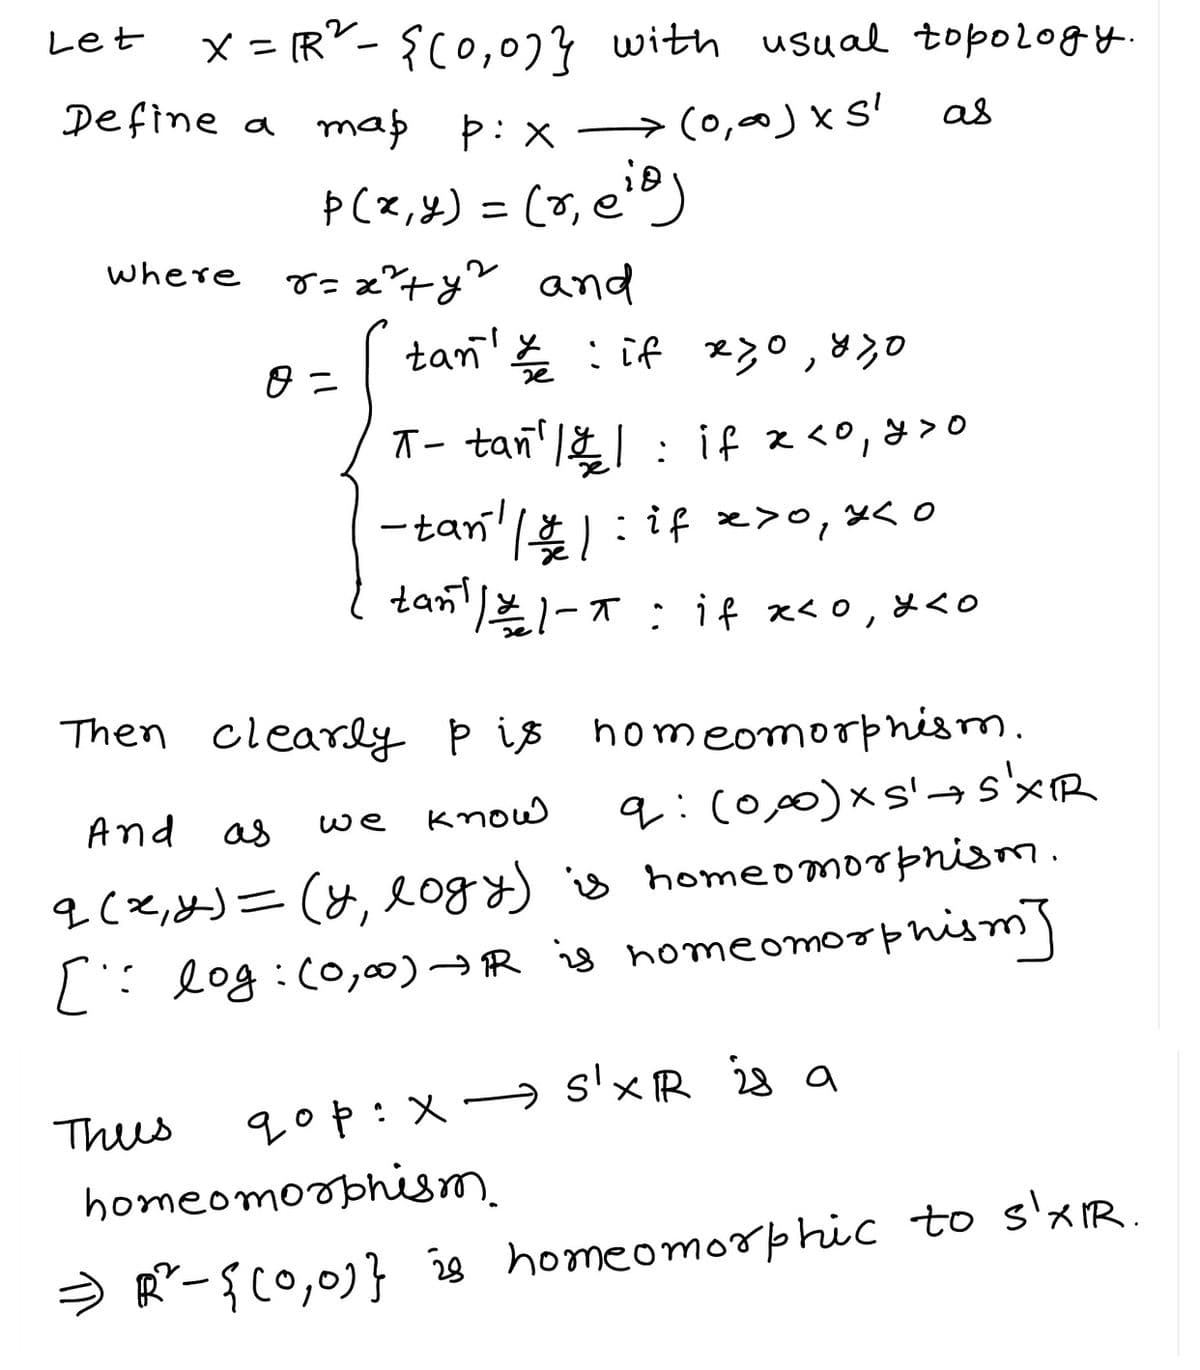 Let X = ℝ² - {(0,0)} with usual topology.
Define a map p: X → (0,∞) × S¹ as
p(x,y) = (r, e^{iθ})
where r = x² + y² and
θ = { tan⁻¹ y/x : if x ≥ 0, y ≥ 0
π - tan⁻¹ |y/x| : if x < 0, y > 0
- tan⁻¹ |y/x| : if x > 0, y < 0
tan⁻¹ |y/x| - π : if x < 0, y < 0
Then clearly p is homeomorphism.
And as we know q: (0,∞) × S¹ → S¹ × ℝ
q(x,y) = (y, log y) is homeomorphism.
[∵ log : (0,∞) → ℝ is homeomorphism]
Thus q∘p : X → S¹ × ℝ is a
homeomorphism.
⇒ ℝ² - {(0,0)} is homeomorphic to S¹ × ℝ.